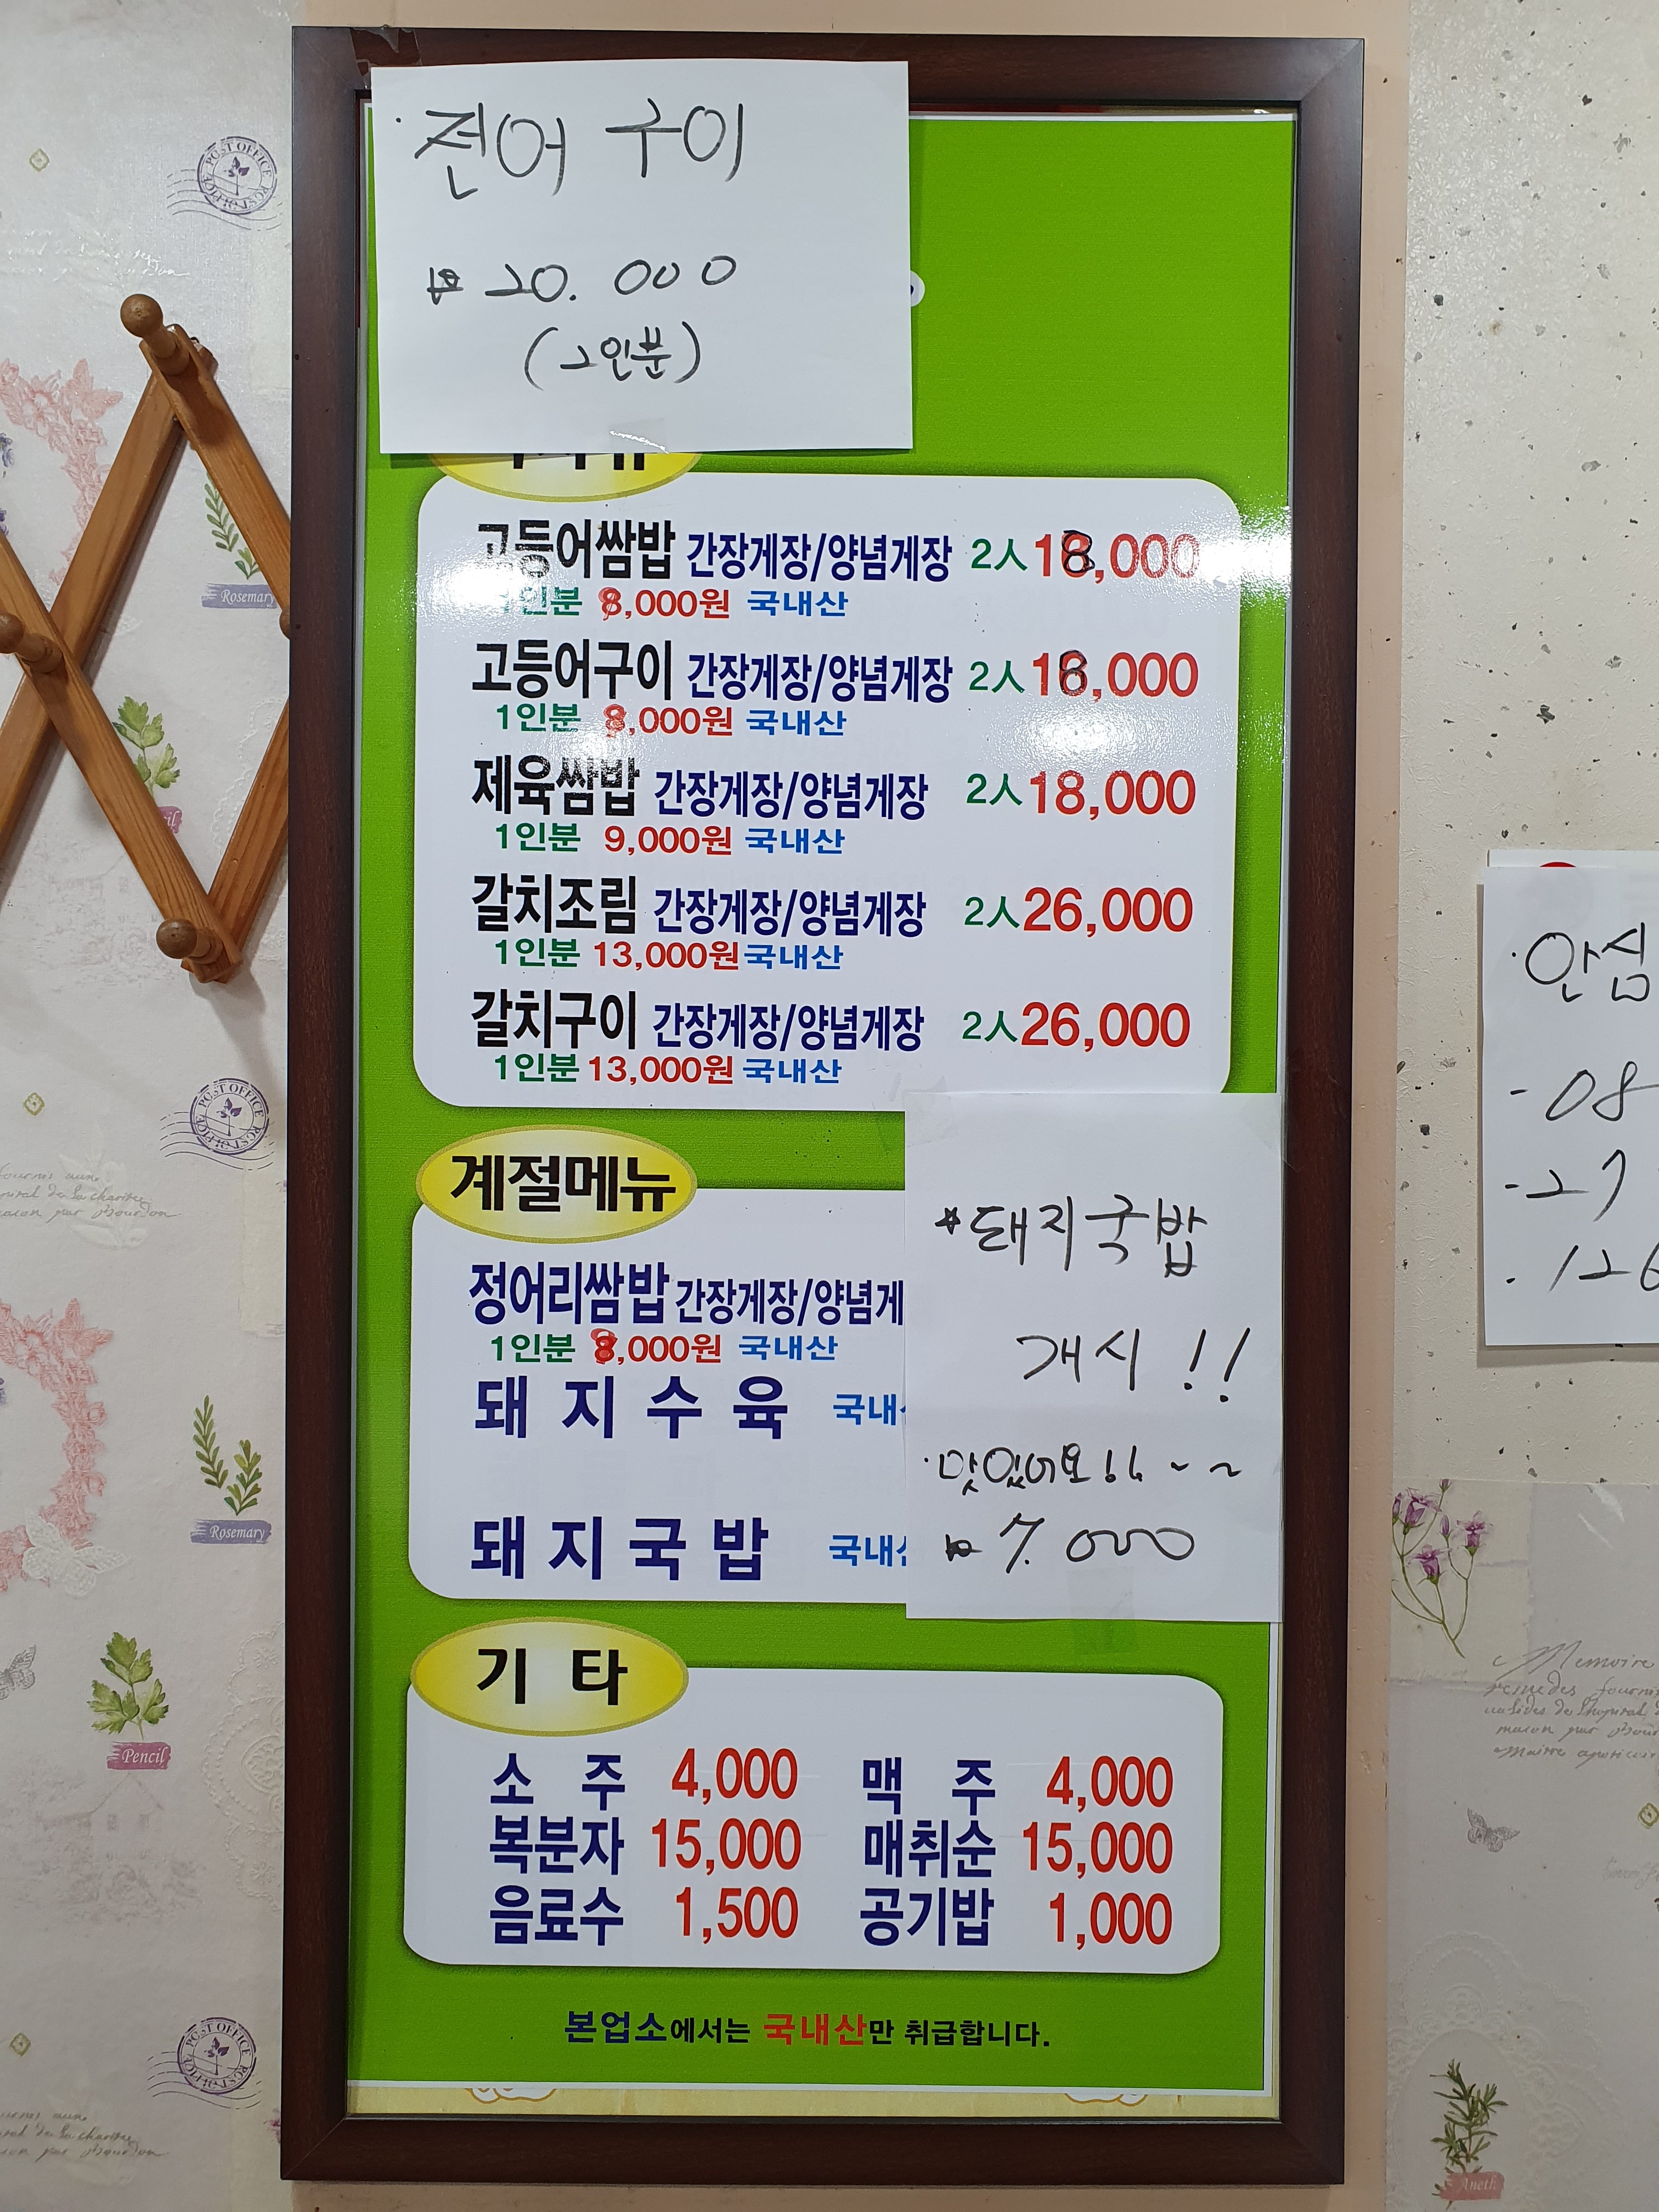 · 전어 구이
₩ 20.000
(2인분)
고등어쌈밥 간장게장/양념게장 2人 18,000
1인분 8,000원 국내산
고등어구이 간장게장/양념게장 2人 18,000
1인분 8,000원 국내산
제육쌈밥 간장게장/양념게장 2人 18,000
1인분 9,000원 국내산
갈치조림 간장게장/양념게장 2人 26,000
1인분 13,000원 국내산
갈치구이 간장게장/양념게장 2人 26,000
1인분 13,000원 국내산
계절메뉴
정어리쌈밥 간장게장/양념게
1인분 8,000원 국내산
돼지수육 국내
돼지국밥 국내
* 돼지국밥
개시 !!
· 맛있어요!! ~ ~
₩ 7.000
기 타
소 주 4,000 맥 주 4,000
복분자 15,000 매취순 15,000
음료수 1,500 공기밥 1,000
본업소에서는 국내산만 취급합니다.
· 안심
- 08
- 27
POST OFFICE
Rosemary
POST OFFICE
Rosemary
Pencil
POST OFFICE
Memoire
Aneth